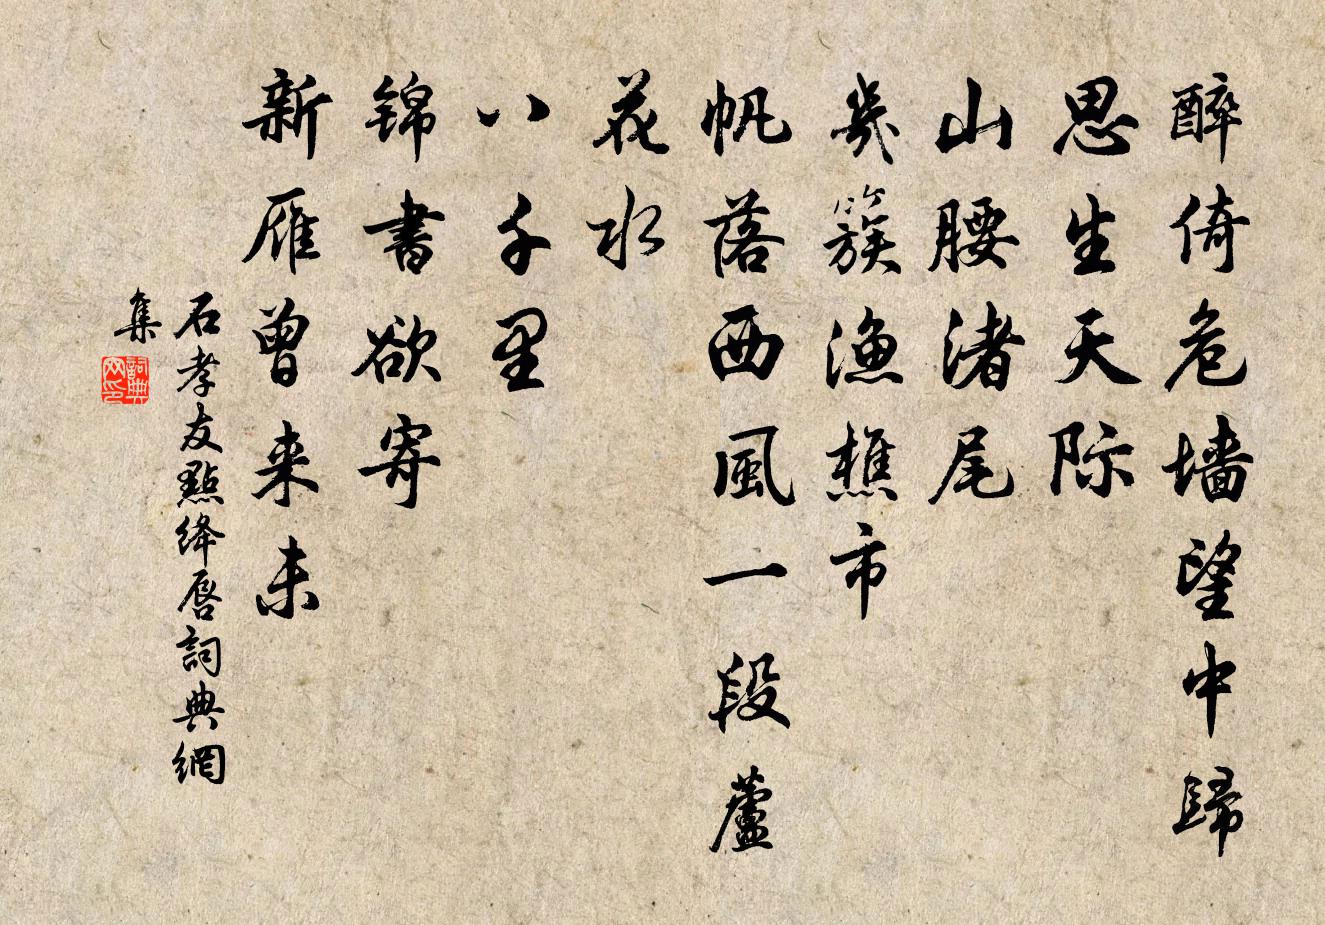 醉倚危墙望中歸
思生天际
山腰渚尾
幾簇漁樵市
帆落西風一段蘆
花水
八千里
锦書欲寄
新雁曾来未
石孝友點绛唇詞典網
集
詞典網印